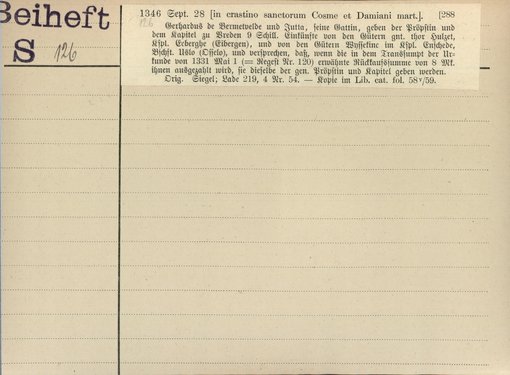 Beiheft
S 126
1346 Sept. 28 [in crastino sanctorum Cosme et Damiani mart.]. [288
126
Gerhardus de Bermetvelde und Jutta, seine Gattin, geben der Pröpstin und
dem Kapitel zu Vreden 9 Schill. Einkünfte von den Gütern gnt. thor Hulzet,
Kspl. Ecberghe (Eibergen), und von den Gütern Wyssekinc im Kspl. Enschede,
Bschft. Uslo (Osselo), und versprechen, daß, wenn die in dem Transsumpt der Ur-
kunde von 1331 Mai 1 (= Regest Nr. 120) erwähnte Rückkaufssumme von 8 Mk.
ihnen ausgezahlt wird, sie dieselbe der gen. Pröpstin und Kapitel geben werden.
Orig. Siegel; Lade 219, 4 Nr. 54. — Kopie im Lib. cat. fol. 58v/59.